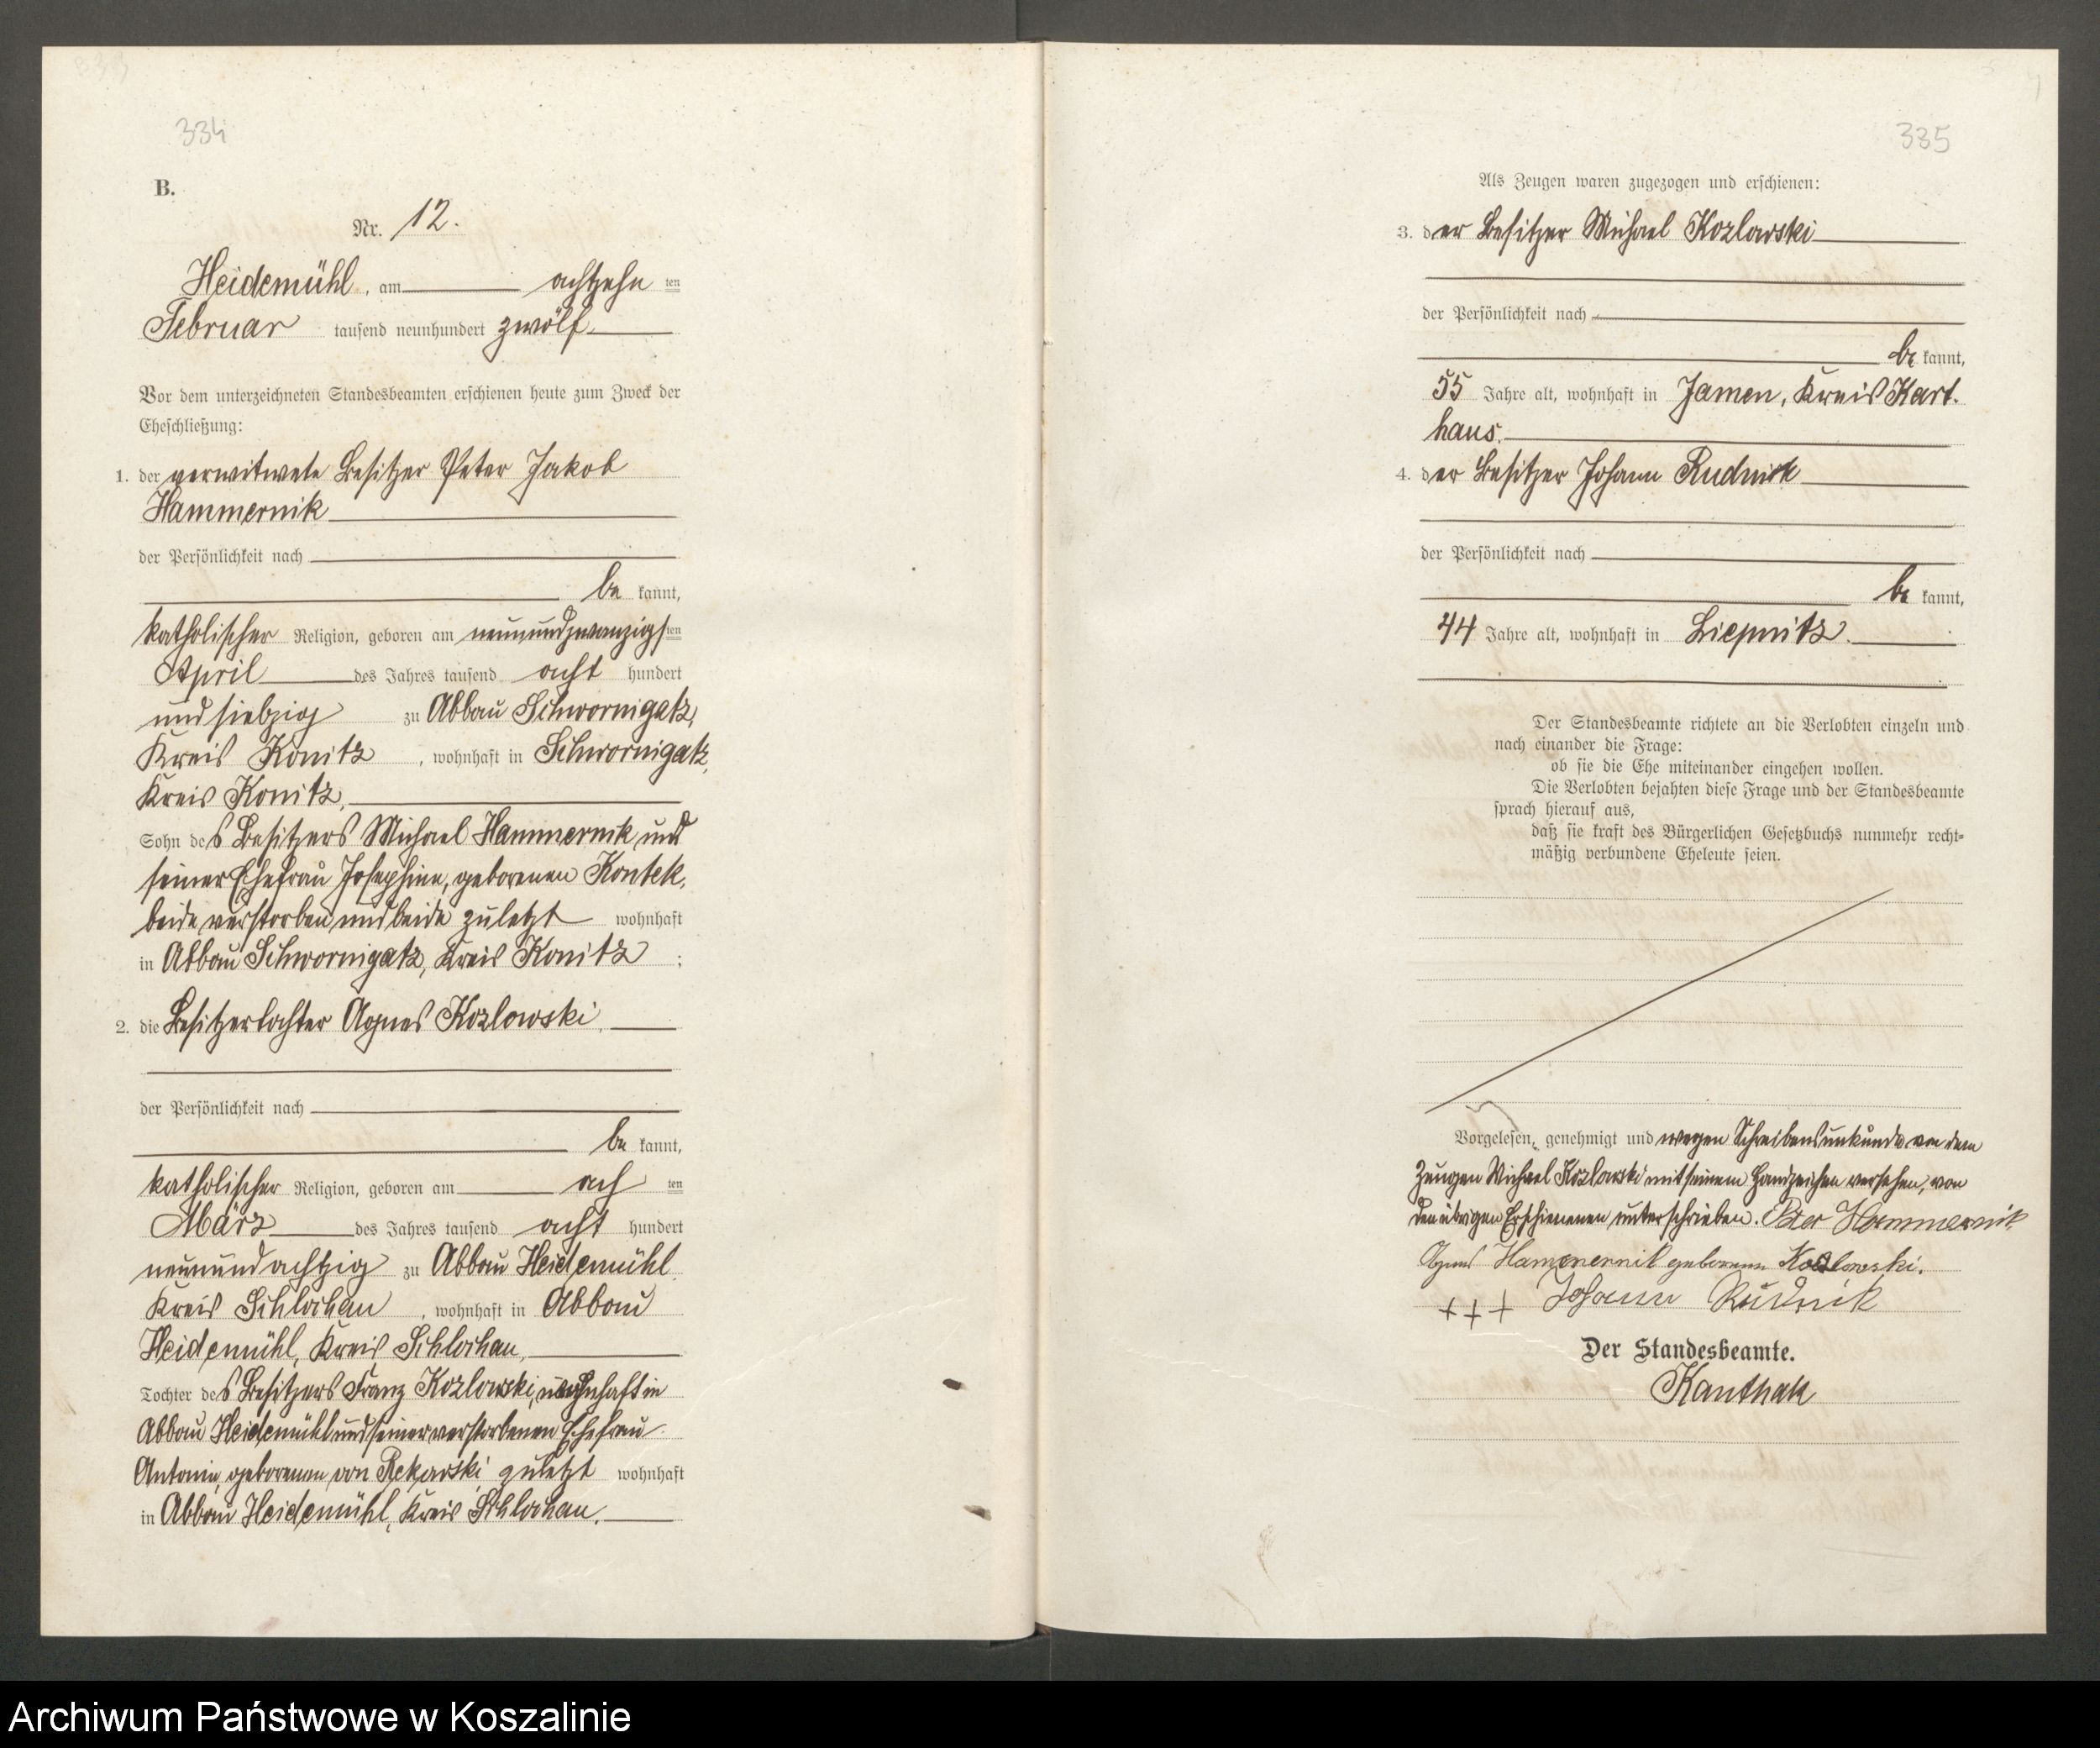 334
B.
Nr. 12.
Heidemühl, am achtzehn ten
Februar tausend neunhundert zwölf.
Vor dem unterzeichneten Standesbeamten erschienen heute zum Zweck der
Eheschließung:
1. der verwitwete Besitzer Peter Jakob
Hammernik
der Persönlichkeit nach
be kannt,
katholischer Religion, geboren am neunundzwanzigs ten
April des Jahres tausend acht hundert
und siebzig zu Abbau Schwornigatz,
Kreis Konitz, wohnhaft in Schwornigatz,
Kreis Konitz,
Sohn des Besitzers Michael Hammernik und
seiner Ehefrau Josephine, geborenen Kontek,
beide verstorben und beide zuletzt wohnhaft
in Abbau Schwornigatz, Kreis Konitz ;
2. die Besitzertochter Agnes Kozlowski,
der Persönlichkeit nach
be kannt,
katholischer Religion, geboren am ach ten
März des Jahres tausend acht hundert
neunundachtzig zu Abbau Heidemühl
Kreis Schlochau, wohnhaft in Abbau
Heidemühl, Kreis Schlochau,
Tochter des Besitzers Franz Kozlowski, wohnhaft in
Abbau Heidemühl und seiner verstorbenen Ehefrau
Antonie, geborenen von Rekowski zuletzt wohnhaft
in Abbau Heidemühl, Kreis Schlochau.
335
Als Zeugen waren zugezogen und erschienen:
3. der Besitzer Michael Kozlowski
der Persönlichkeit nach
be kannt,
55 Jahre alt, wohnhaft in Jamen, Kreis Kart.
haus.
4. der Besitzer Johann Rudnick
der Persönlichkeit nach
be kannt,
44 Jahre alt, wohnhaft in Liepnitz.
Der Standesbeamte richtete an die Verlobten einzeln und
nach einander die Frage:
ob sie die Ehe miteinander eingehen wollen.
Die Verlobten bejahten diese Frage und der Standesbeamte
sprach hierauf aus,
daß sie kraft des Bürgerlichen Gesetzbuchs nunmehr recht-
mäßig verbundene Eheleute seien.
Vorgelesen, genehmigt und wegen Schreibensunkunde von dem
Zeugen Michael Kozlowski mit seinem Handzeichen versehen, von
den übrigen Erschienenen unterschrieben. Peter Hammernik
Agnes Hammernik geborenen Kozlowski.
+++ Johann Rudnik
Der Standesbeamte.
Kanthak
Archiwum Państwowe w Koszalinie